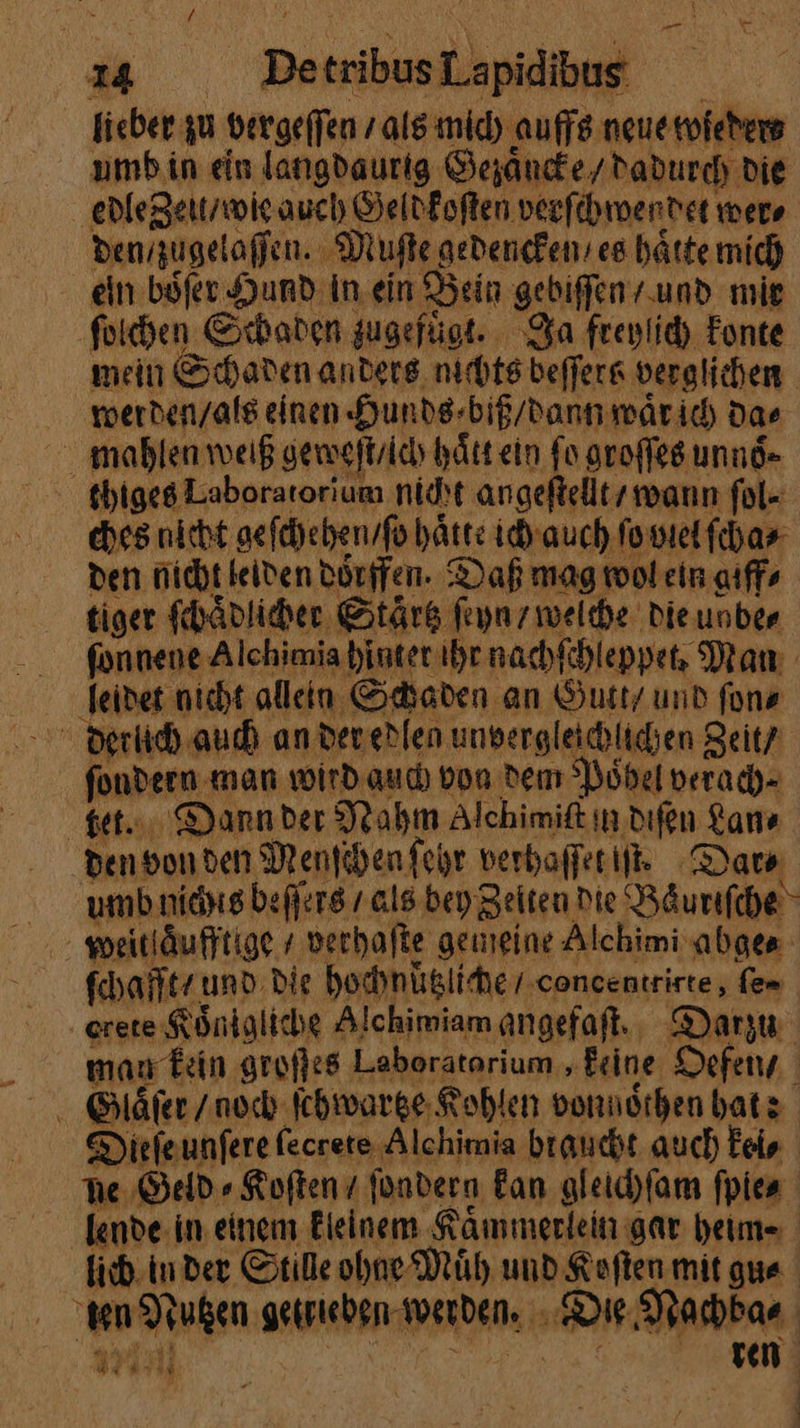 14 De tribus Lapidibus
lieber zu vergeſſen / als mich auffs neue wieder⸗
umb in ein langdaurig Gezaͤncke / dadurch die
edle Zeit / wie auch Geldkoſten verſchwendet wer⸗
den / zugelaſſen. Muſte gedencken / es haͤtte mich
ein boͤſer Hund in ein Bein gebiſſen / und mir
ſolchen Schaden zugefuͤgt. Ja freylich konte
mein Schaden anders nichts beſſers verglichen
werden / als einen Hunds⸗biß / dann waͤr ich da⸗
mahlen weiß geweſt / ich haͤtt ein ſo groſſes unnoͤ⸗
thiges Laboratorium nicht angeſtellt / wann ſol⸗
ches nicht geſchehen / ſo haͤtte ich auch ſo viel ſcha⸗
den nicht leiden doͤrffen. Daß mag wol ein giff⸗
tiger ſchaͤdlicher Staͤrtz ſeyn / welche die unbe⸗
ſonnene Alchimia hinter ihr nachſchleppet. Man
leidet nicht allein Schaden an Gutt / und ſon⸗
derlich auch an der edlen unvergleichlichen Zeit /
ſondern man wird auch von dem Poͤbel verach⸗
tet. Dann der Nahm Alchimiſt in diſen Lan⸗
den von den Menſchen ſehr verhaſſet iſt. Dar⸗
umb nichts beſſers / als bey Zeiten die Baͤuriſche
weitlaͤufftige / verhaſte gemeine Alchimi abge⸗
ſchafft / und die hochnuͤtzliche / concentrirte, ſe⸗
crete Koͤnigliche Alchimiam angefaſt. Darzu
man kein groſſes Laboratorium, keine Oefen /
Glaͤſer / noch ſchwartze Kohlen vonnoͤthen hat:
Dieſe unſere ſecrete Alchimia braucht auch kei⸗
ne Geld⸗Koſten / ſondern kan gleichſam ſpie⸗
lende in einem kleinem Kaͤmmerlein gar heim⸗
lich in der Stille ohne Muͤh und Koſten mit gu⸗
ten Nutzen getrieben werden. Die Nachba⸗
ren